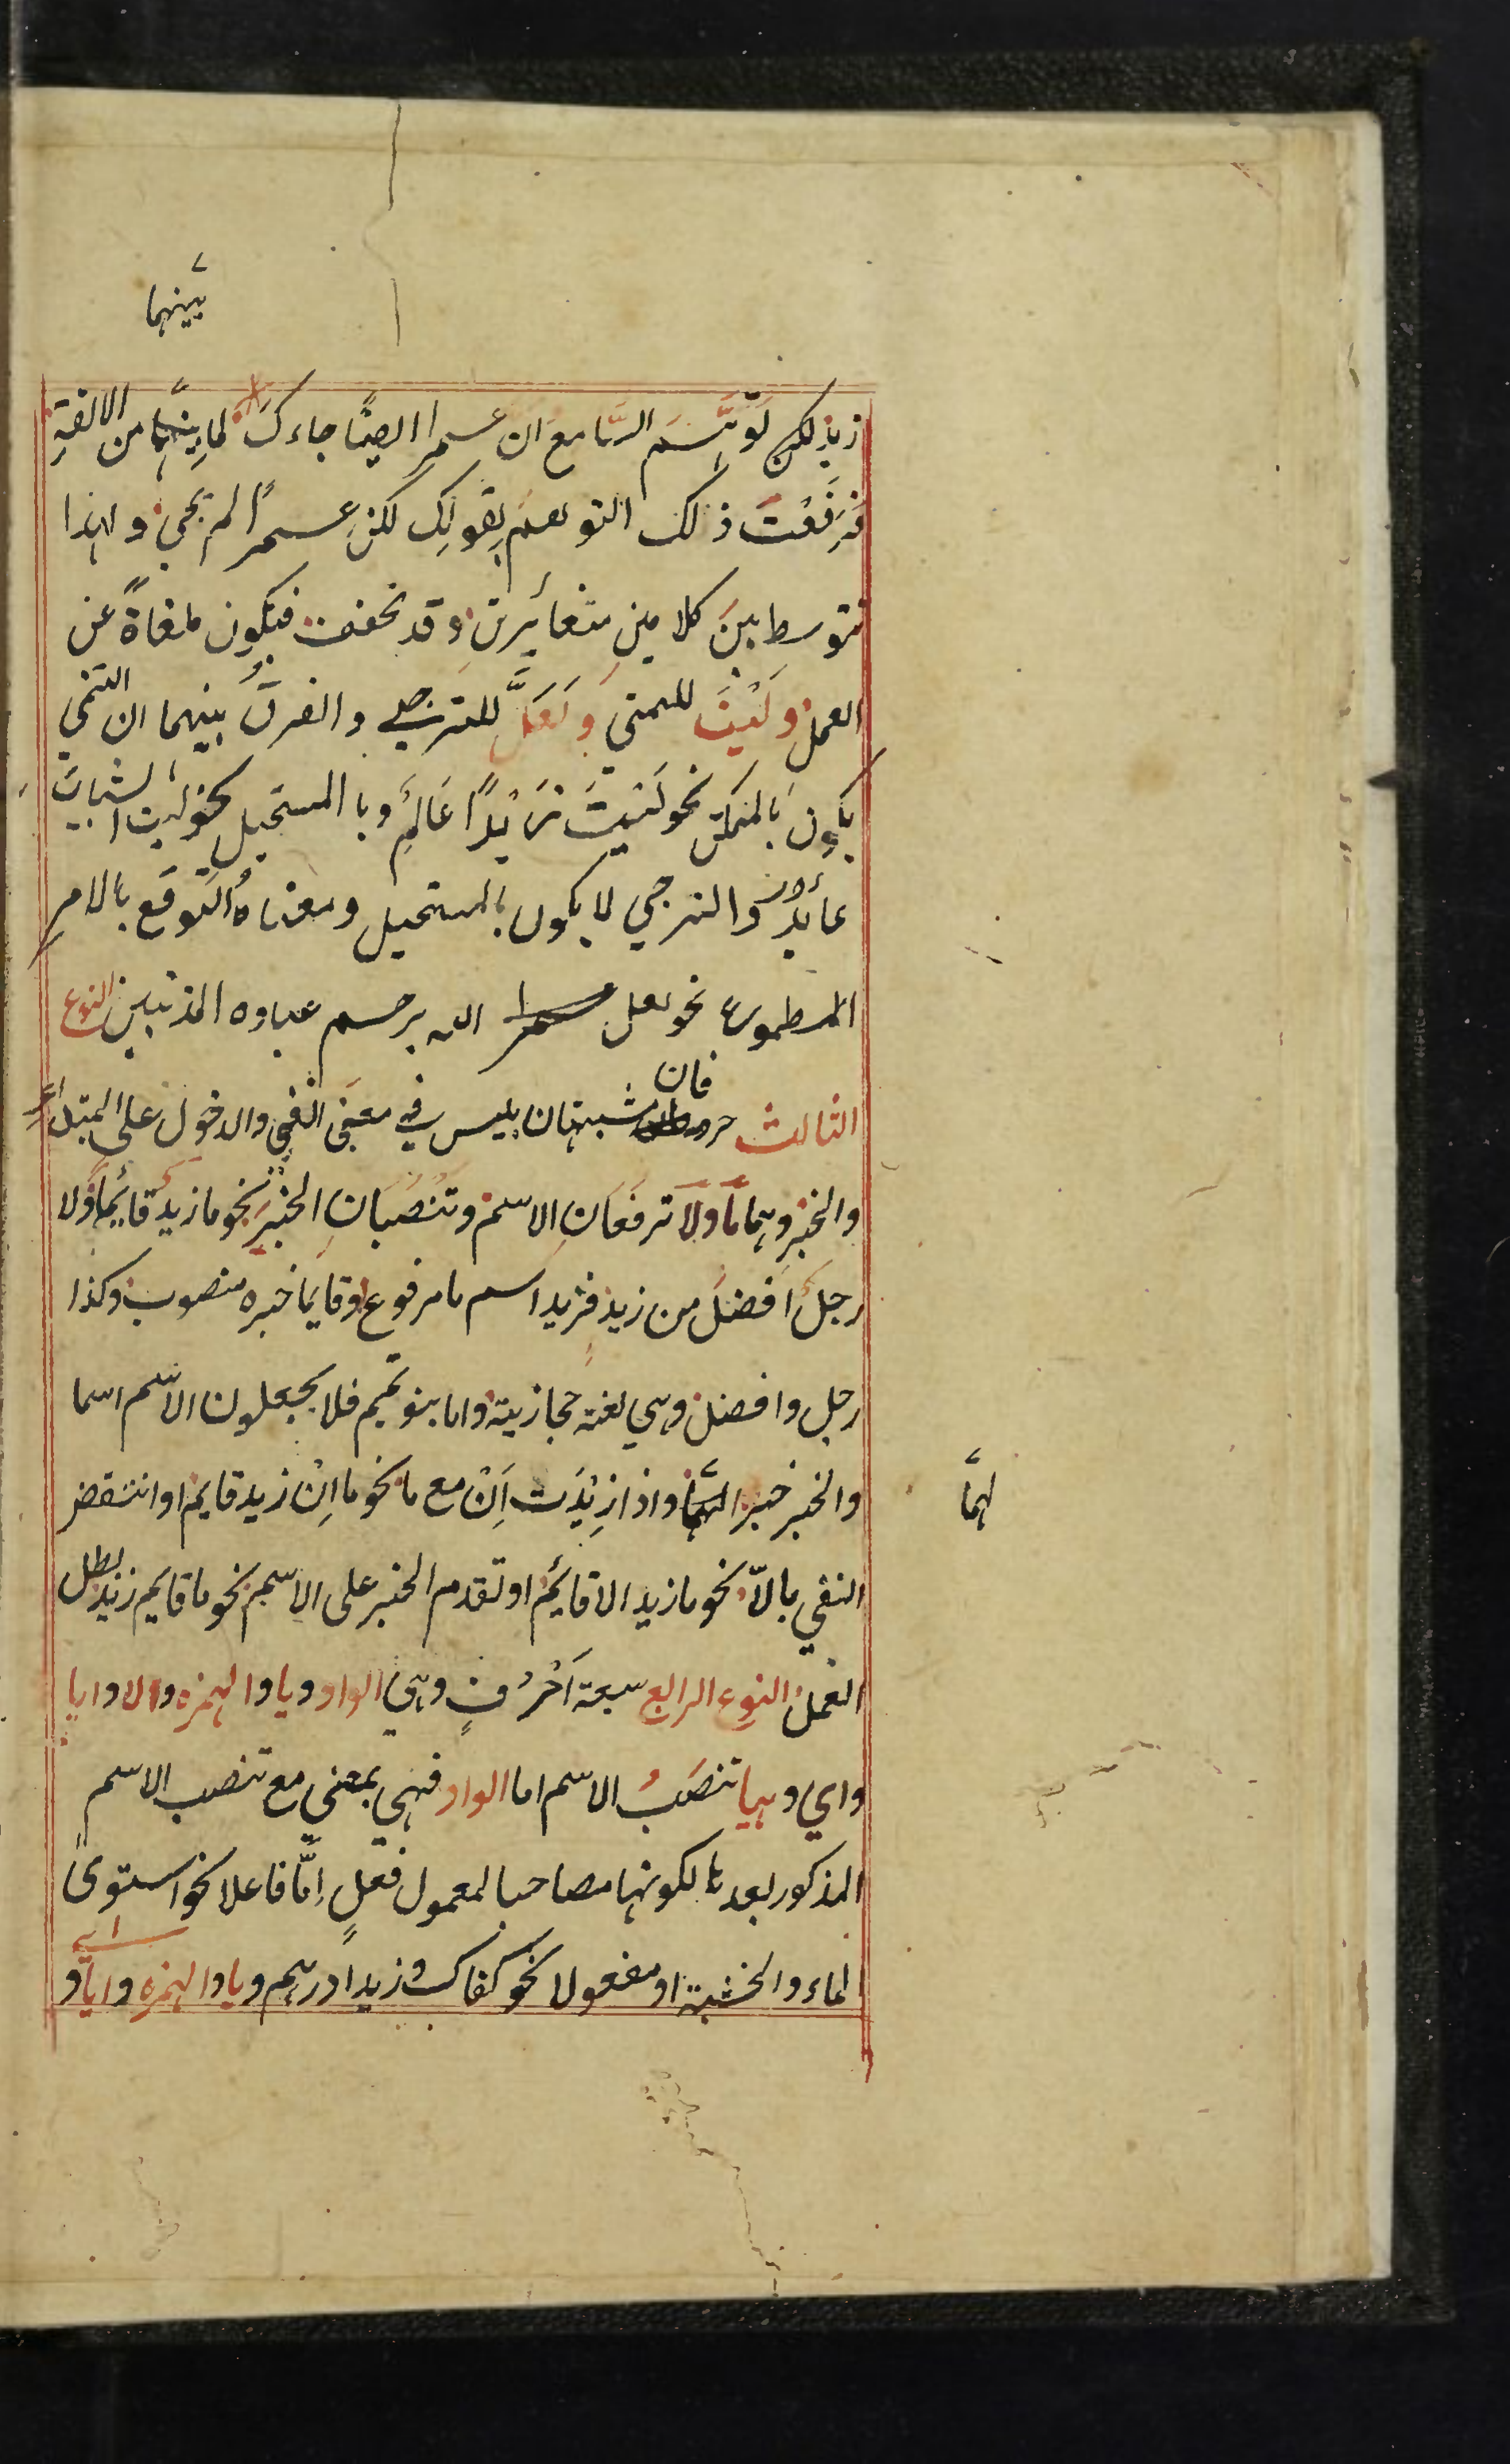 بينهما
زيد لكن توهم السامع ان عمرا ايضا جاءك لما بينهما من الالفة
فرفعت ذلك التوهم بقولك لكن عمرا لم يجئ ولهذا
تتوسط بين كلامين متغائرين وقد تخفف فيكون ملغاة عن
العمل وليت للتمني ولعل للترجي والفرق بينهما ان التمني
يكون بالممكن نحو ليت زيدا عالم وبالمستحيل نحو ليت الشباب
عائد والترجي لا يكون بالمستحيل ومعناه التوقع بالامر
المطموع نحو لعل الله يرحم عباده المذنبين النوع
الثالث حرفان مشبهتان بليس في معنى النفي والدخول على المبتداء
والخبر وهما ما ولا ترفعان الاسم وتنصبان الخبر نحو ما زيد قائما ولا
رجل افضل من زيد فزيد اسم ما مرفوع وقايما خبره منصوب وكذا
رجل وافضل وهي لغة حجازية واما بنو تميم فلا يجعلون الاسم اسما
والخبر خبرا لهما واذا زيدت ان مع ما نحو ما ان زيد قايم او انتقض
لهما
النفي بالا نحو ما زيد الا قائم او تقدم الخبر على الاسم نحو ما قايم زيد بطل
العمل النوع الرابع سبعة احرف وهي الواو ويا والهمزه والا وايا
واي وهيا تنصب الاسم اما الواو فهي بمعنى مع تنصب الاسم
المذكور بعدها لكونها مصاحبا لمعمول فعل اما فاعلا نحو استوى
الماء والخشبة او مفعولا نحو كفاك وزيدا درهم ويا والهمزه وايا و
اي